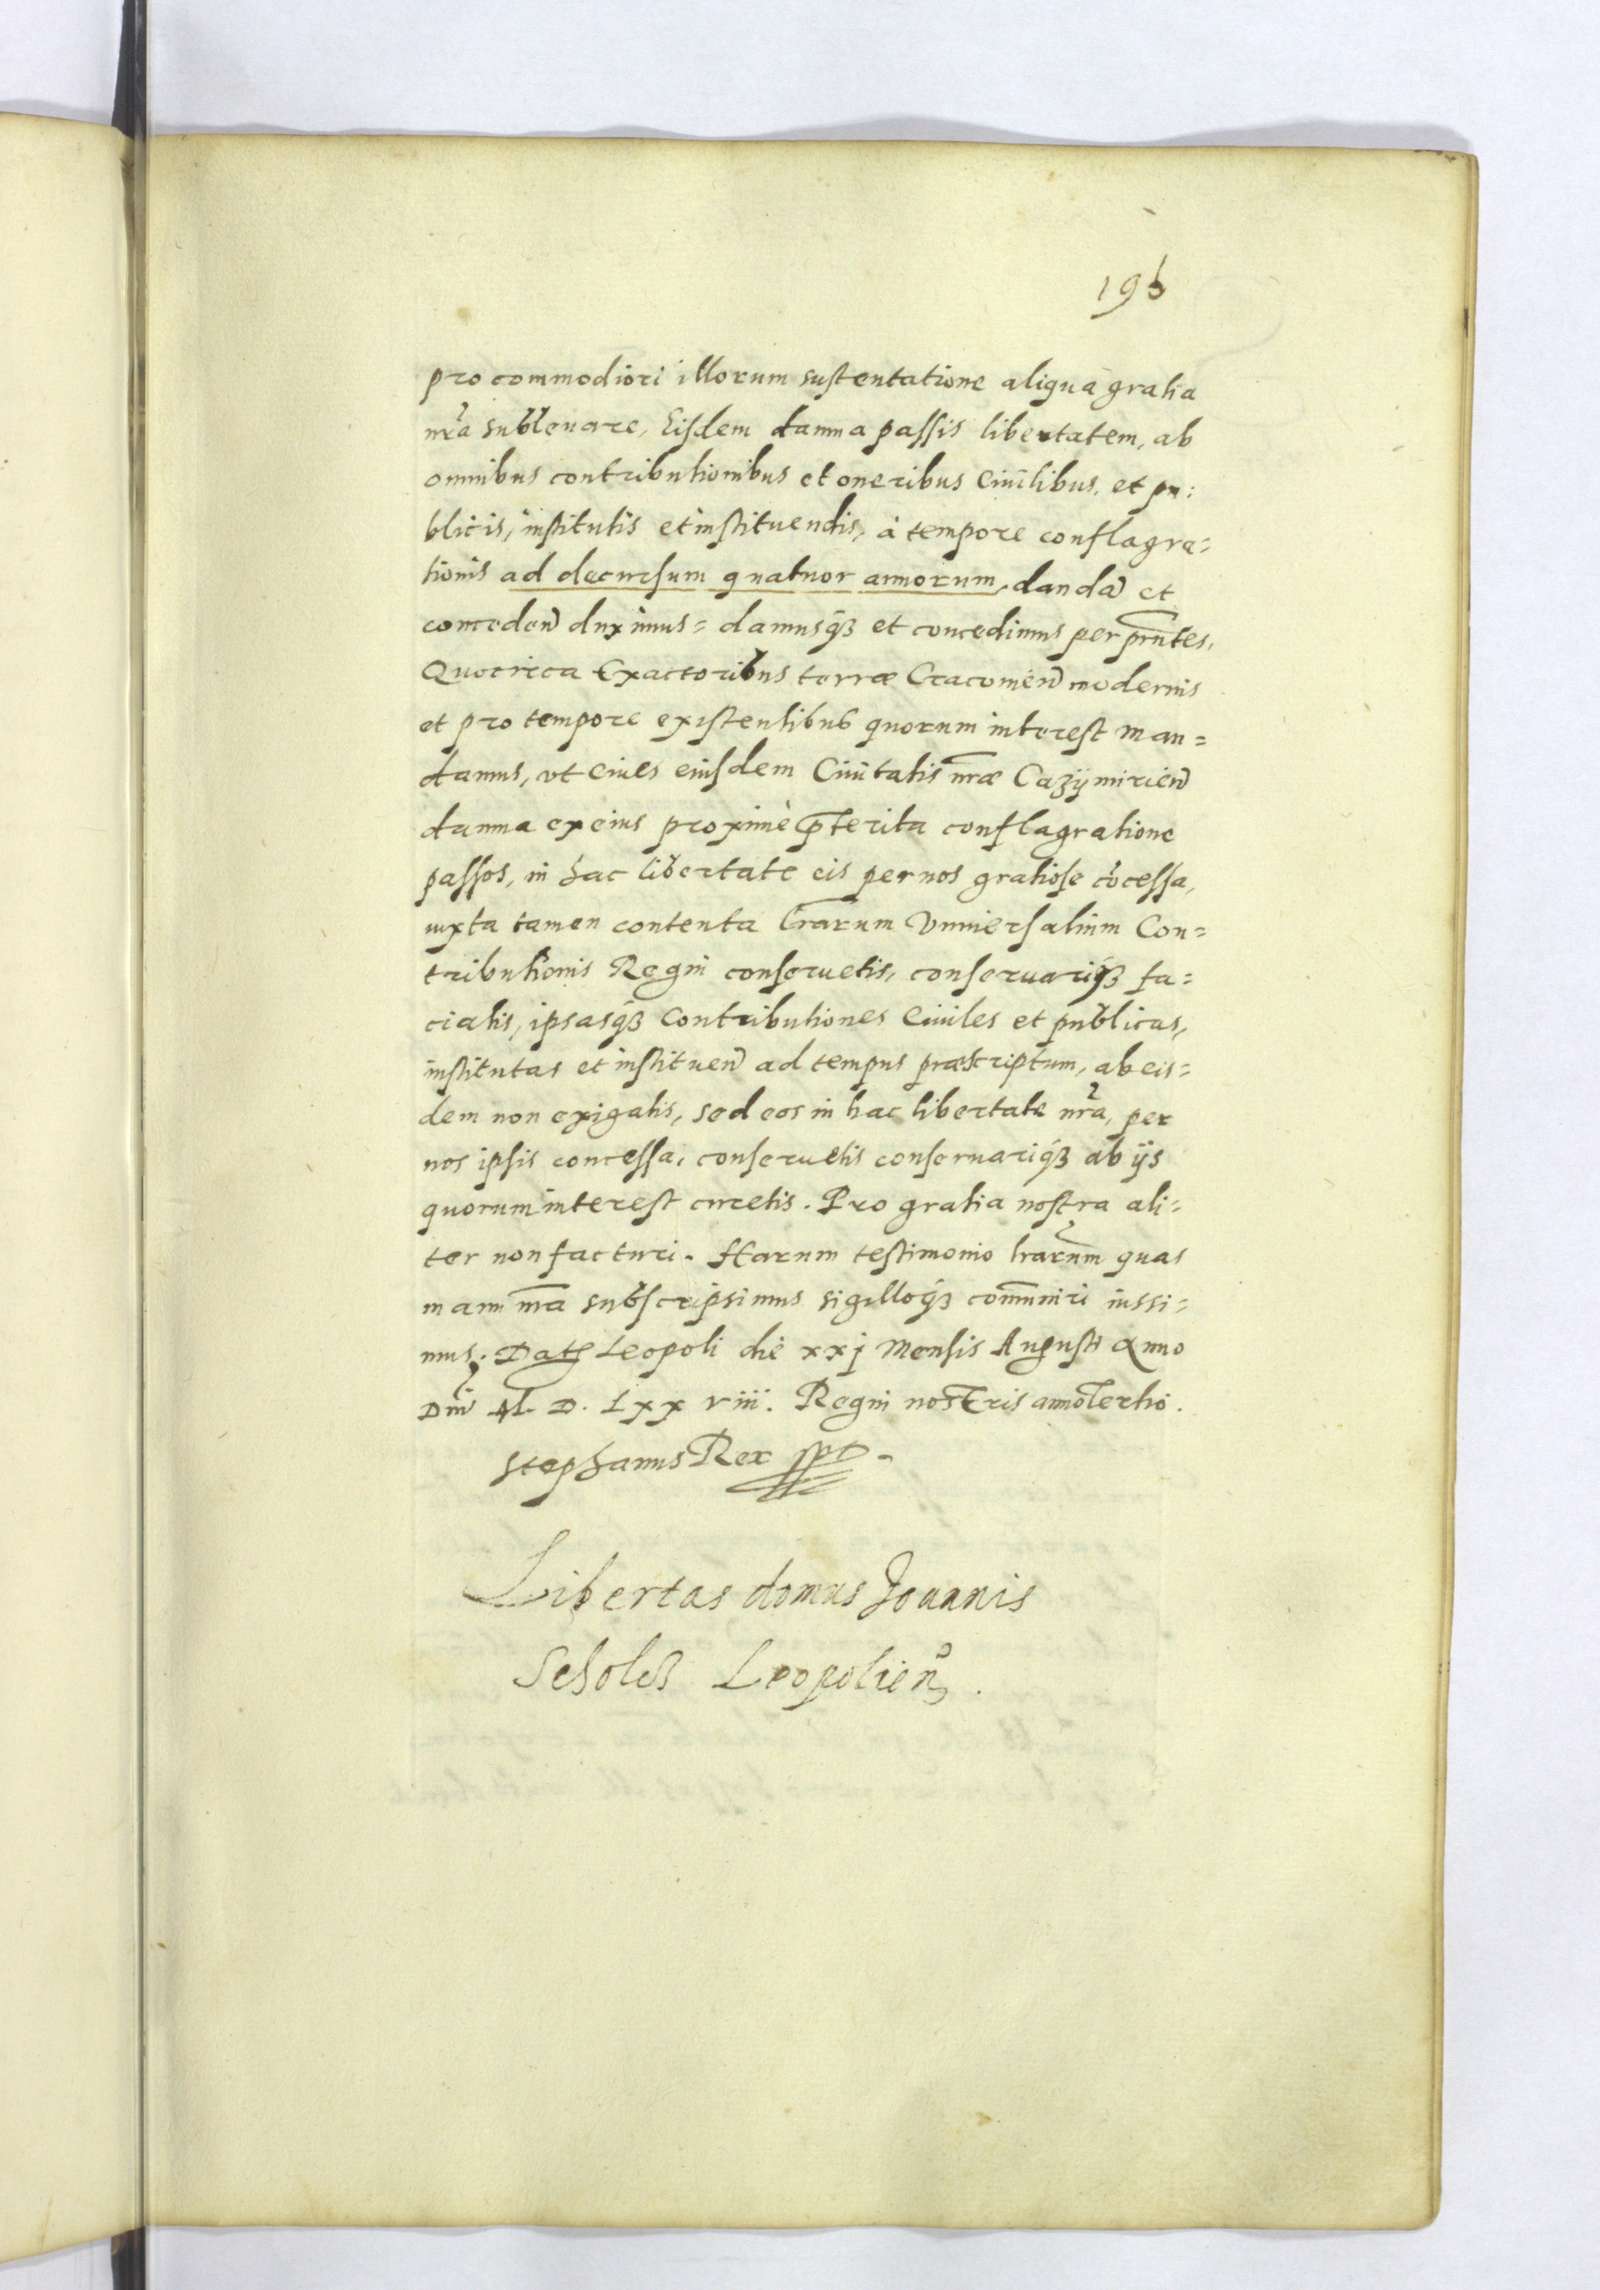 196
pro commodiori illorum sustentatione aliqua gratia
nra subleuare, Eisdem damna passis libertatem, ab
omnibus contributionibus et oneribus Ciuilibus, et pu:
blicis, institutis et instituendis, à tempore conflagra=
tionis ad decursum quatuor annorum, dandã et
conceden̄ duximus= damusq̃ et concedimus per prñtes,
Quocirca Exactoribus terræ Cracouien̄ modernis
et pro tempore existentibus quorum interest man=
damus, vt ciues eiusdem Ciuitatis nr̃æ Cazymirien̄
damna ex eius proximè p̃terita conflagratione
passos, in hac libertate eis per nos gratiose cõcessa,
iuxta tamen contenta lr̃arum Vniuersalium Con=
tributionis Regni conseruetis, conseruariq́3 fa=
ciatis, ipsasq́3 Contributiones Ciuiles et publicas,
institutas et instituen̄ ad tempus præscriptum, ab eis=
dem non exigatis, sed eos in hac libertate nrã, per
nos ipsis concessa, conseruetis conseruariq́3 ab ijs
quorum interest curetis. Pro gratia nostra ali=
ter non facturi. Harum testimonio lrarum̃ quas
manu nr̃a subscripsimus sigilloq́3 com̃uniri iussi=
mus. Dat Leopoli die xxj Mensis Augusti Anno
Dni M. D. Lxx viii. Regni nostri anno Tertio.
Stephanus Rex sspt
Libertas domus Joannis
Scholcz Leopolien̄.